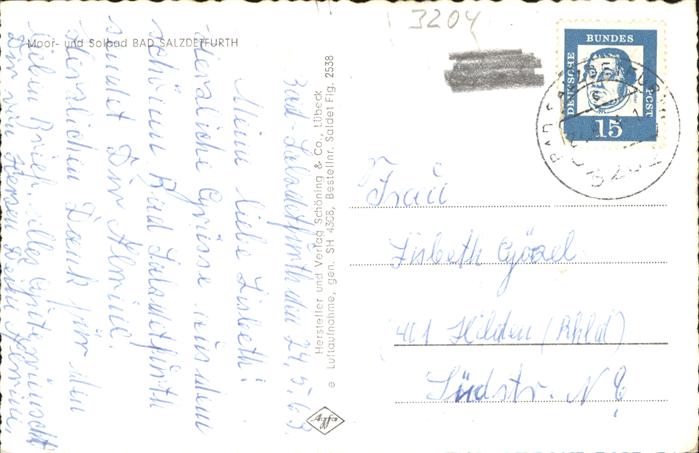 3204
Moor- und Solbad BAD SALZDETFURTH
Bad-Salzdetfurth den 24.5.63.
Meine liebe Lisbeth!
Herzliche Grüsse aus dem
schönen Bad Salzdetfurth
sendet Dir Almid.
Herzlichen Dank für den
lieben Brief, alles Gute wünscht
Dir von Herzen Deine
Hersteller und Verlag Schöning & Co., Lübeck
e Luftaufnahme, gen. SH 4308, Bestellnr. Saldet Flg. 2538
Agfa
DEUTSCHE
BUNDES
POST
15
Frau
Lisbeth Gözel
401 Hilden (Rhld)
Südstr. N 8